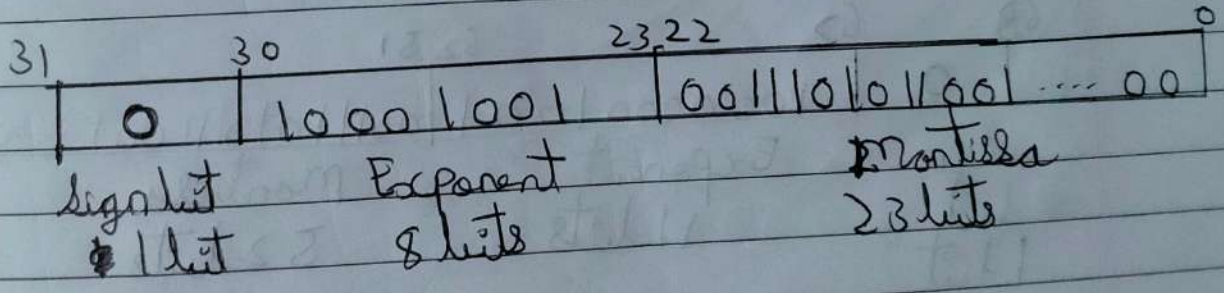 31 30 23 22 0
0 10001001 0011101011001 .... 00
Sign bit Exponent Mantissa
1 bit 8 bits 23 bits